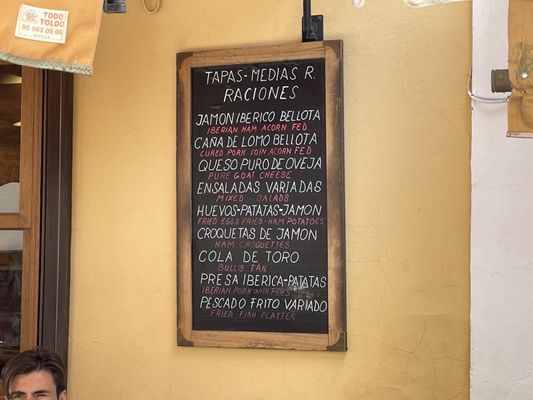 TODO
TOLDO
95 563 00 05
SEVILLA
TAPAS-MEDIAS R.
RACIONES
JAMON IBERICO BELLOTA
IBERIAN HAM ACORN FED
CAÑA DE LOMO BELLOTA
CURED PORK LOIN ACORN FED
QUESO PURO DE OVEJA
PURE GOAT CHEESE
ENSALADAS VARIADAS
MIXED SALADS
HUEVOS-PATATAS-JAMON
FRIED EGGS FRIED-HAM POTATOES
CROQUETAS DE JAMON
HAM CROQUETTES
COLA DE TORO
BULL'S TAIL
PRESA IBERICA-PATATAS
IBERIAN PORK WITH FRIES
PESCADO FRITO VARIADO
FRIED FISH PLATTER